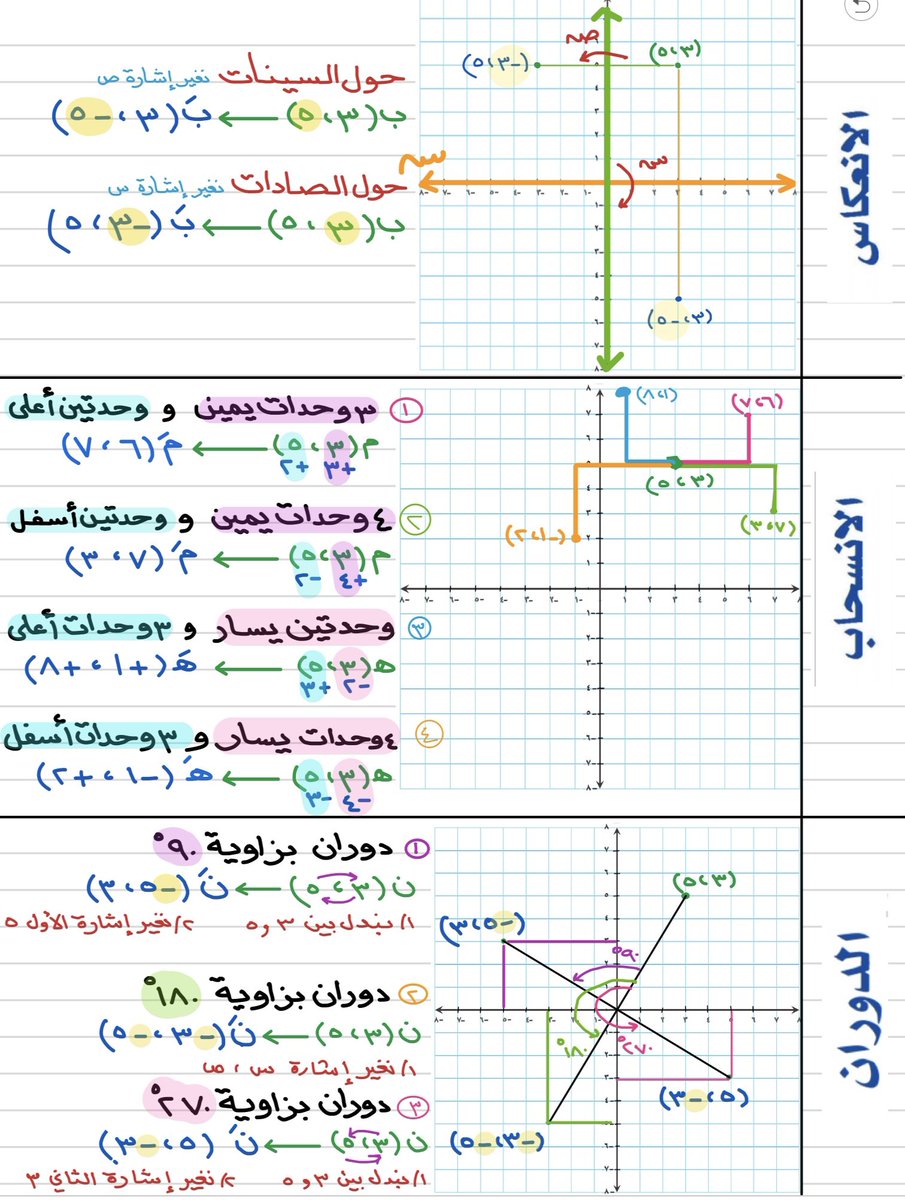 الانعكاس
حول السينات نغير إشارة ص
ب(٣، ٥) ← بَ(٣، -٥)
حول الصادات نغير إشارة س
ب(٣، ٥) ← بَ(-٣، ٥)
ص
س
س
(٣، ٥)
(-٣، ٥)
(٣، -٥)
الانسحاب
١ ٣ وحدات يمين و وحدتين أعلى
م(٣، ٥) ← مَ(٦، ٧)
+٣ +٢
٢ ٤ وحدات يمين و وحدتين أسفل
م(٣، ٥) ← مَ(٧، ٣)
+٤ -٢
٣ وحدتين يسار و ٣ وحدات أعلى
هـ(٣، ٥) ← هـَ(+١، +٨)
-٢ +٣
٤ ٤ وحدات يسار و ٣ وحدات أسفل
هـ(٣، ٥) ← هـَ(-١، +٢)
-٤ -٣
(١، ٨)
(٦، ٧)
(٣، ٥)
(٧، ٣)
(-١، ٢)
الدوران
١ دوران بزاوية ٩٠°
ن(٣، ٥) ← نَ(-٥، ٣)
١/ نبدل بين ٣ و ٥ ٢/ نغير إشارة الأول ٥
٢ دوران بزاوية ١٨٠°
ن(٣، ٥) ← نَ(-٣، -٥)
١/ نغير إشارة س، ص
٣ دوران بزاوية ٢٧٠°
ن(٣، ٥) ← نَ(٥، -٣)
١/ نبدل بين ٣ و ٥ ٢/ نغير إشارة الثاني ٣
(٣، ٥)
(-٥، ٣)
٩٠°
١٨٠°
٢٧٠°
(٥، -٣)
(-٣، -٥)